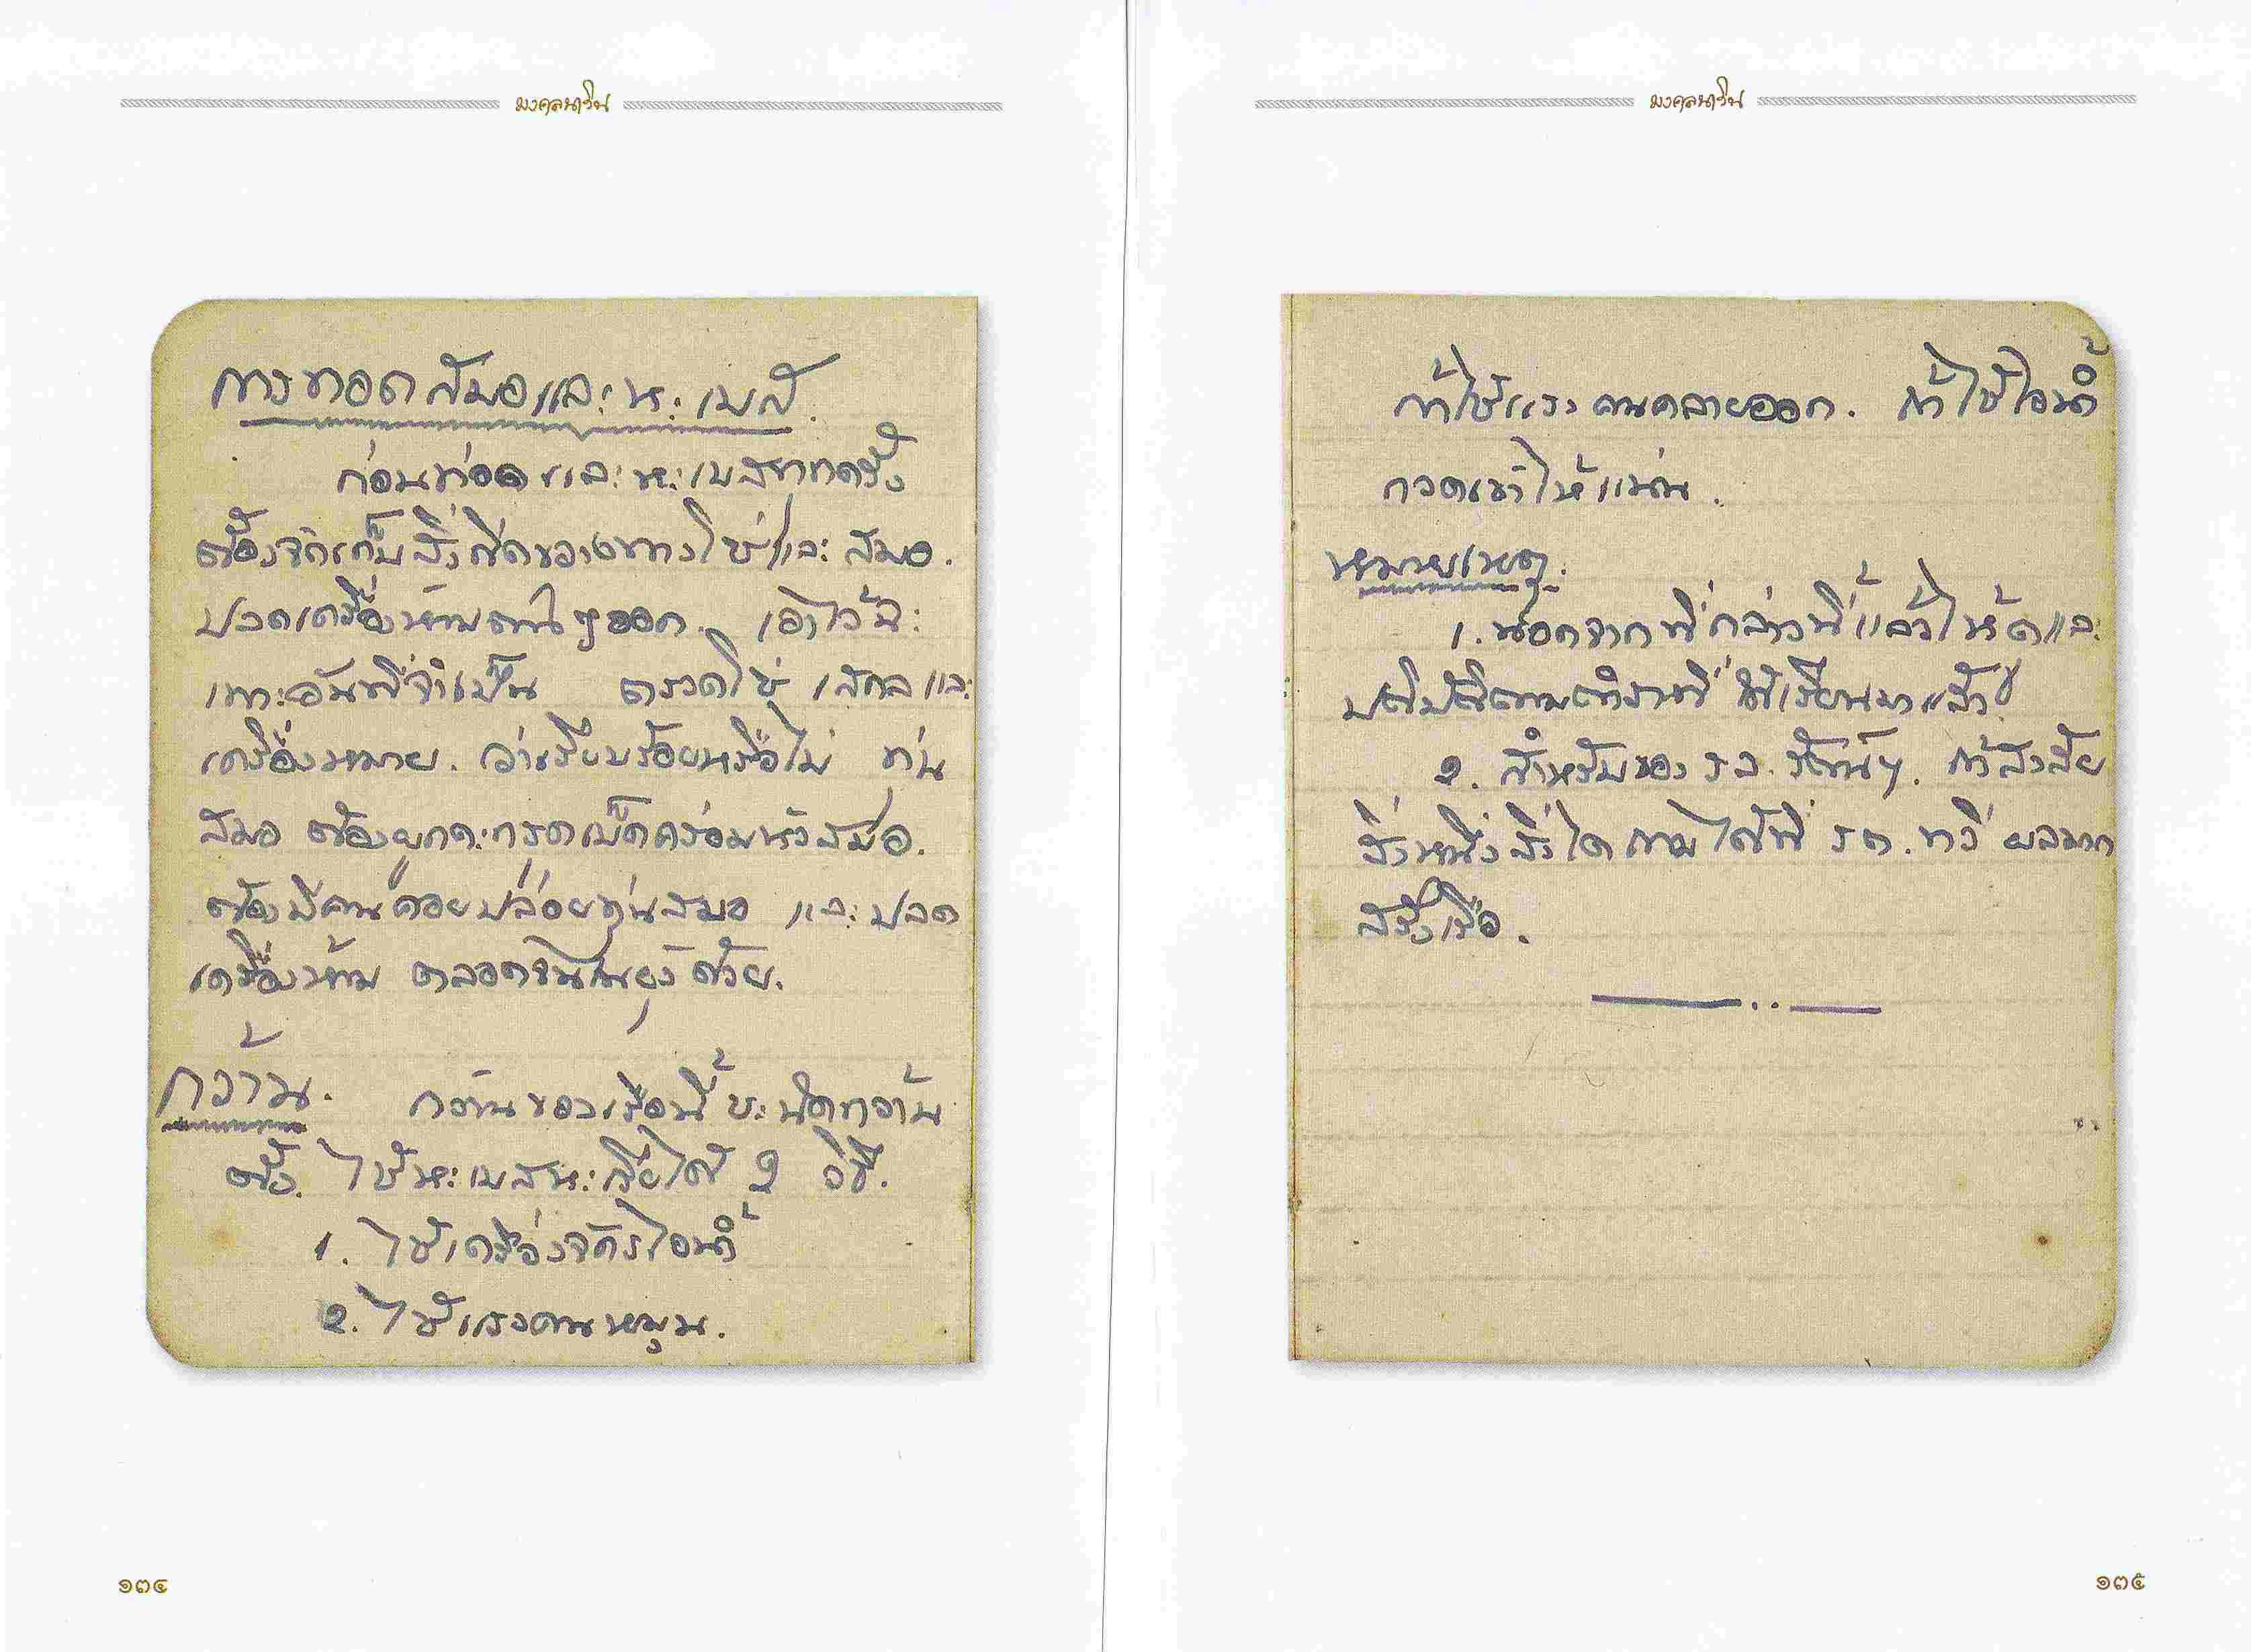 มงคลนาวิน
การทอดสมอและหะเบส์.
ก่อนทอดและหะเบสทุกครั้ง
ต้องจัดเก็บสิ่งกีดขวางทางโซ่และสมอ.
ปลดเครื่องห้ามต่างๆออก. เอาไว้แ
ฉะเพาะอันที่จำเป็น ตรวดโซ่ เสกลและ
เครื่องหมาย. ว่าเรียบร้อยหรือไม่ ทุ่น
สมอ ต้องผูก คร่อมหัวสมอ.
ต้องมีคนคอยปล่อยทุ่นสมอ และปลด
เครื่องห้าม ตลอดจน ด้วย.
กว้าน. กว้านของเรือนี้ชะนิดกว้าน
ตั้ง. ใช้หะเบสหะเรียได้ 2 วิธี.
1. ใช้เครื่องจักรไอน้ำ
2. ใช้แรงคนหมุน.
๑๓๔
มงคลนาวิน
ถ้าใช้แรงคนคลายออก. ถ้าใช้ไอน้ำ
กวดเข้าให้แน่น.
หมายเหตุ.
1. นอกจากที่กล่าวนี้แล้วให้ดูและ
ปฏิบัติตามตำราที่ได้เรียนมาแล้ว
2. สำหรับของ ร.ล. รัตน์ฯ. ถ้าสงสัย
สิ่งหนึ่งสิ่งใด ถามได้ที่ ร.ต. ทวี ผลมาก
สรั่งเรือ.
๑๓๕